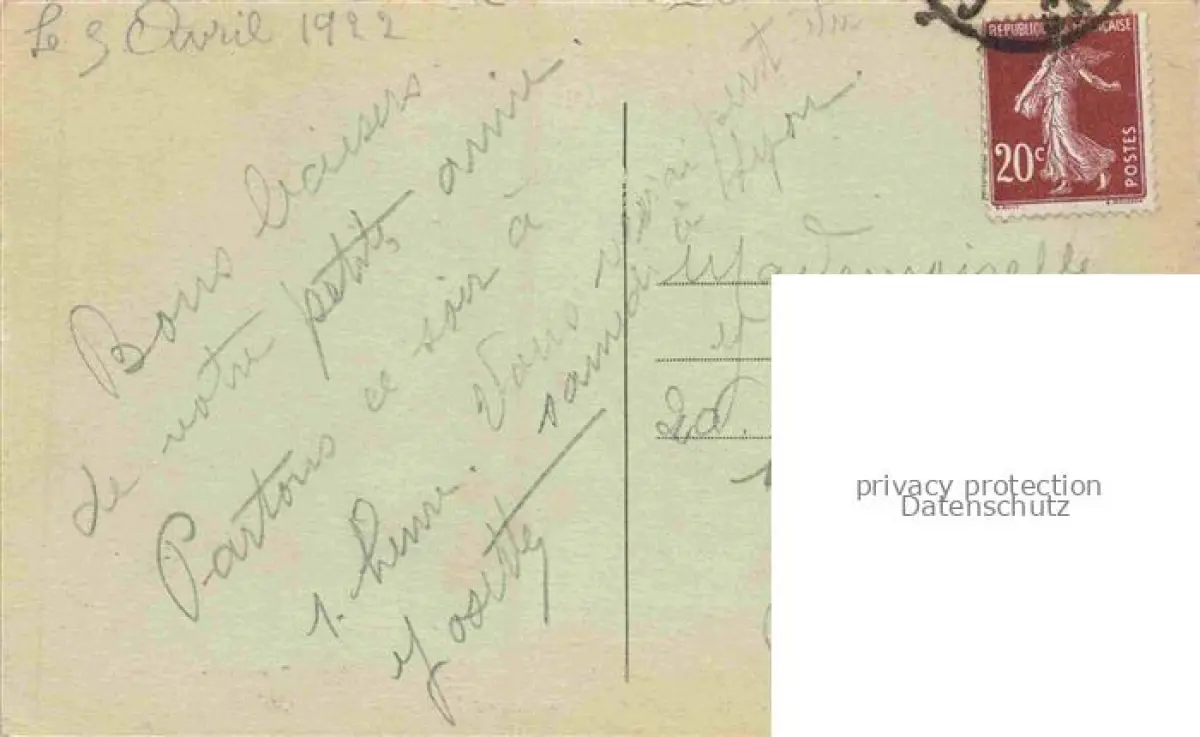 Le 3 Avril 1922
Bons baisers
de votre petite amie.
Partons ce soir à
1. heure. Vous
samedi à Lyon.
Josette
Mademoiselle
REPUBLIQUE FRANÇAISE
20c
POSTES
privacy protection
Datenschutz